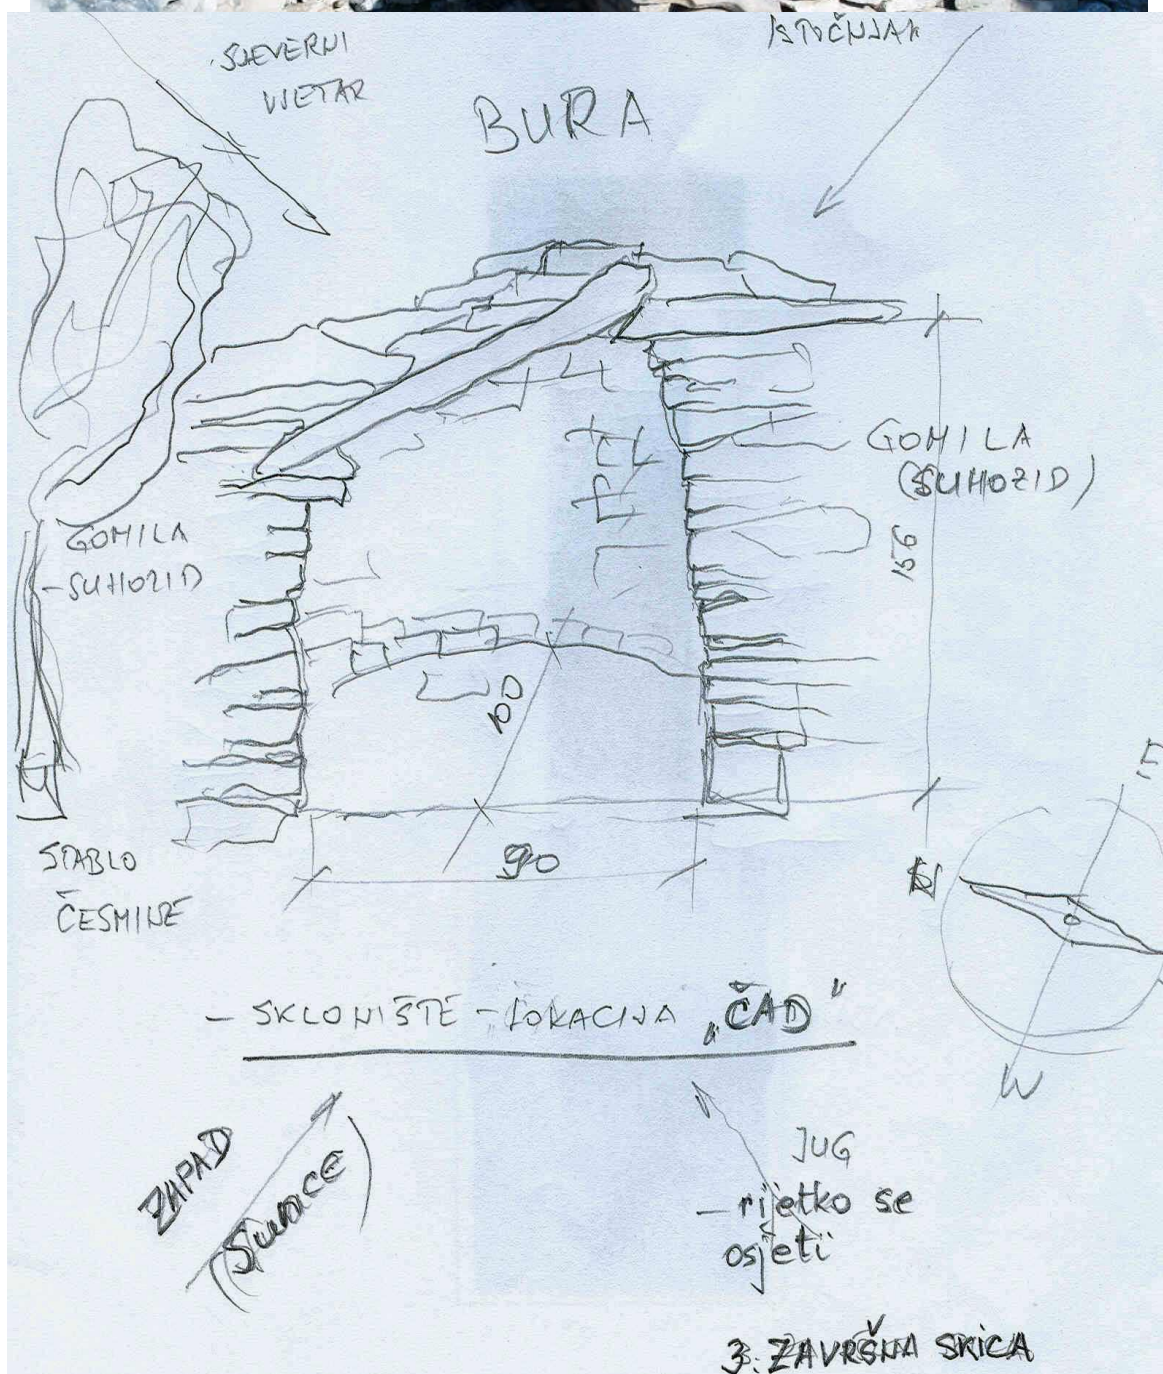 SJEVERNI
VJETAR
ISTOČNJAK
BURA
GOMILA
(SUHOZID)
GOMILA
-SUHOZID
156
100
90
STABLO
ČESMINE
E
N
W
- SKLONIŠTE - LOKACIJA „ČAD"
ZAPAD
(SUNCE)
JUG
- rijetko se
osjeti
3. ZAVRŠNA SKICA